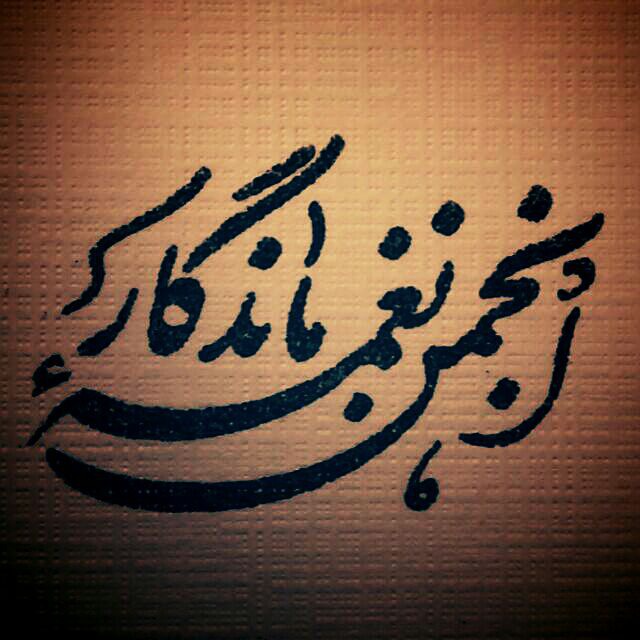 انجمن نغمهٔ ماندگار